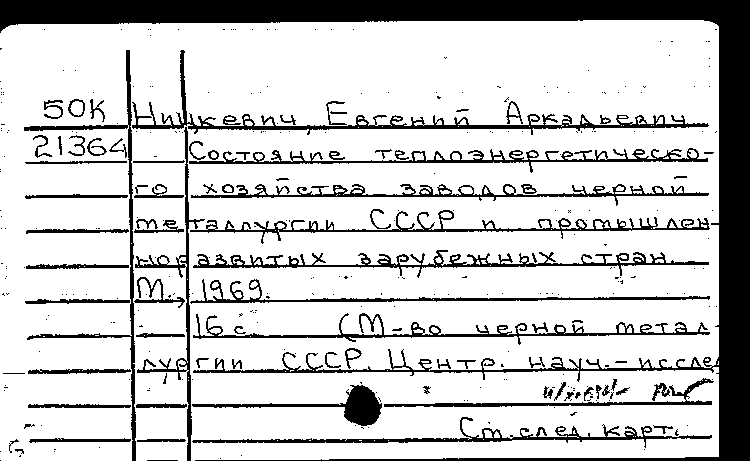 50К Ницкевич, Евгений Аркадьевич
21364 Состояние теплоэнергетическо-
го хозяйства заводов черной
металлургии СССР и промышлен-
норазвитых зарубежных стран.
М., 1969.
16 с. (М-во черной метал-
лургии СССР. Центр. науч.-исслед
См. след. карт.